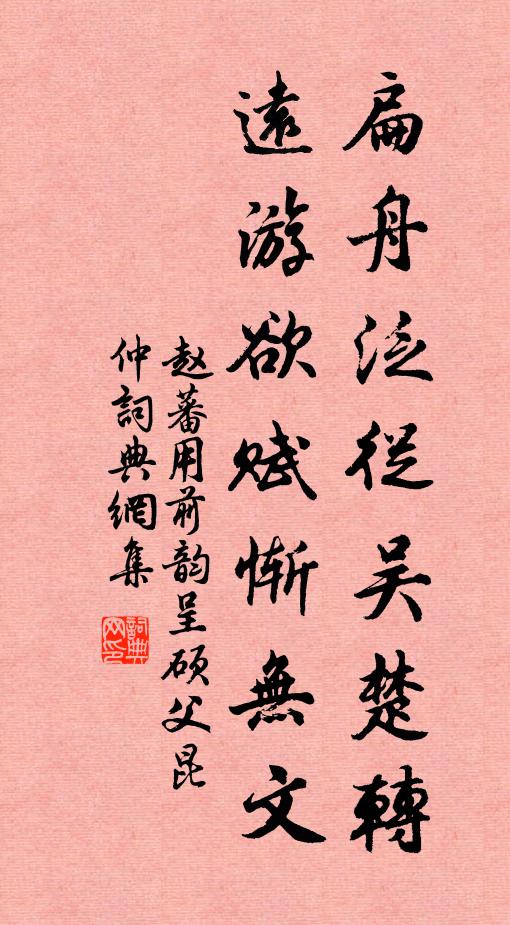 扁舟泛從吴楚轉
遠游欲賦慚無文
赵蕃用前韵呈硕父昆
仲詞典網集
詞典网印